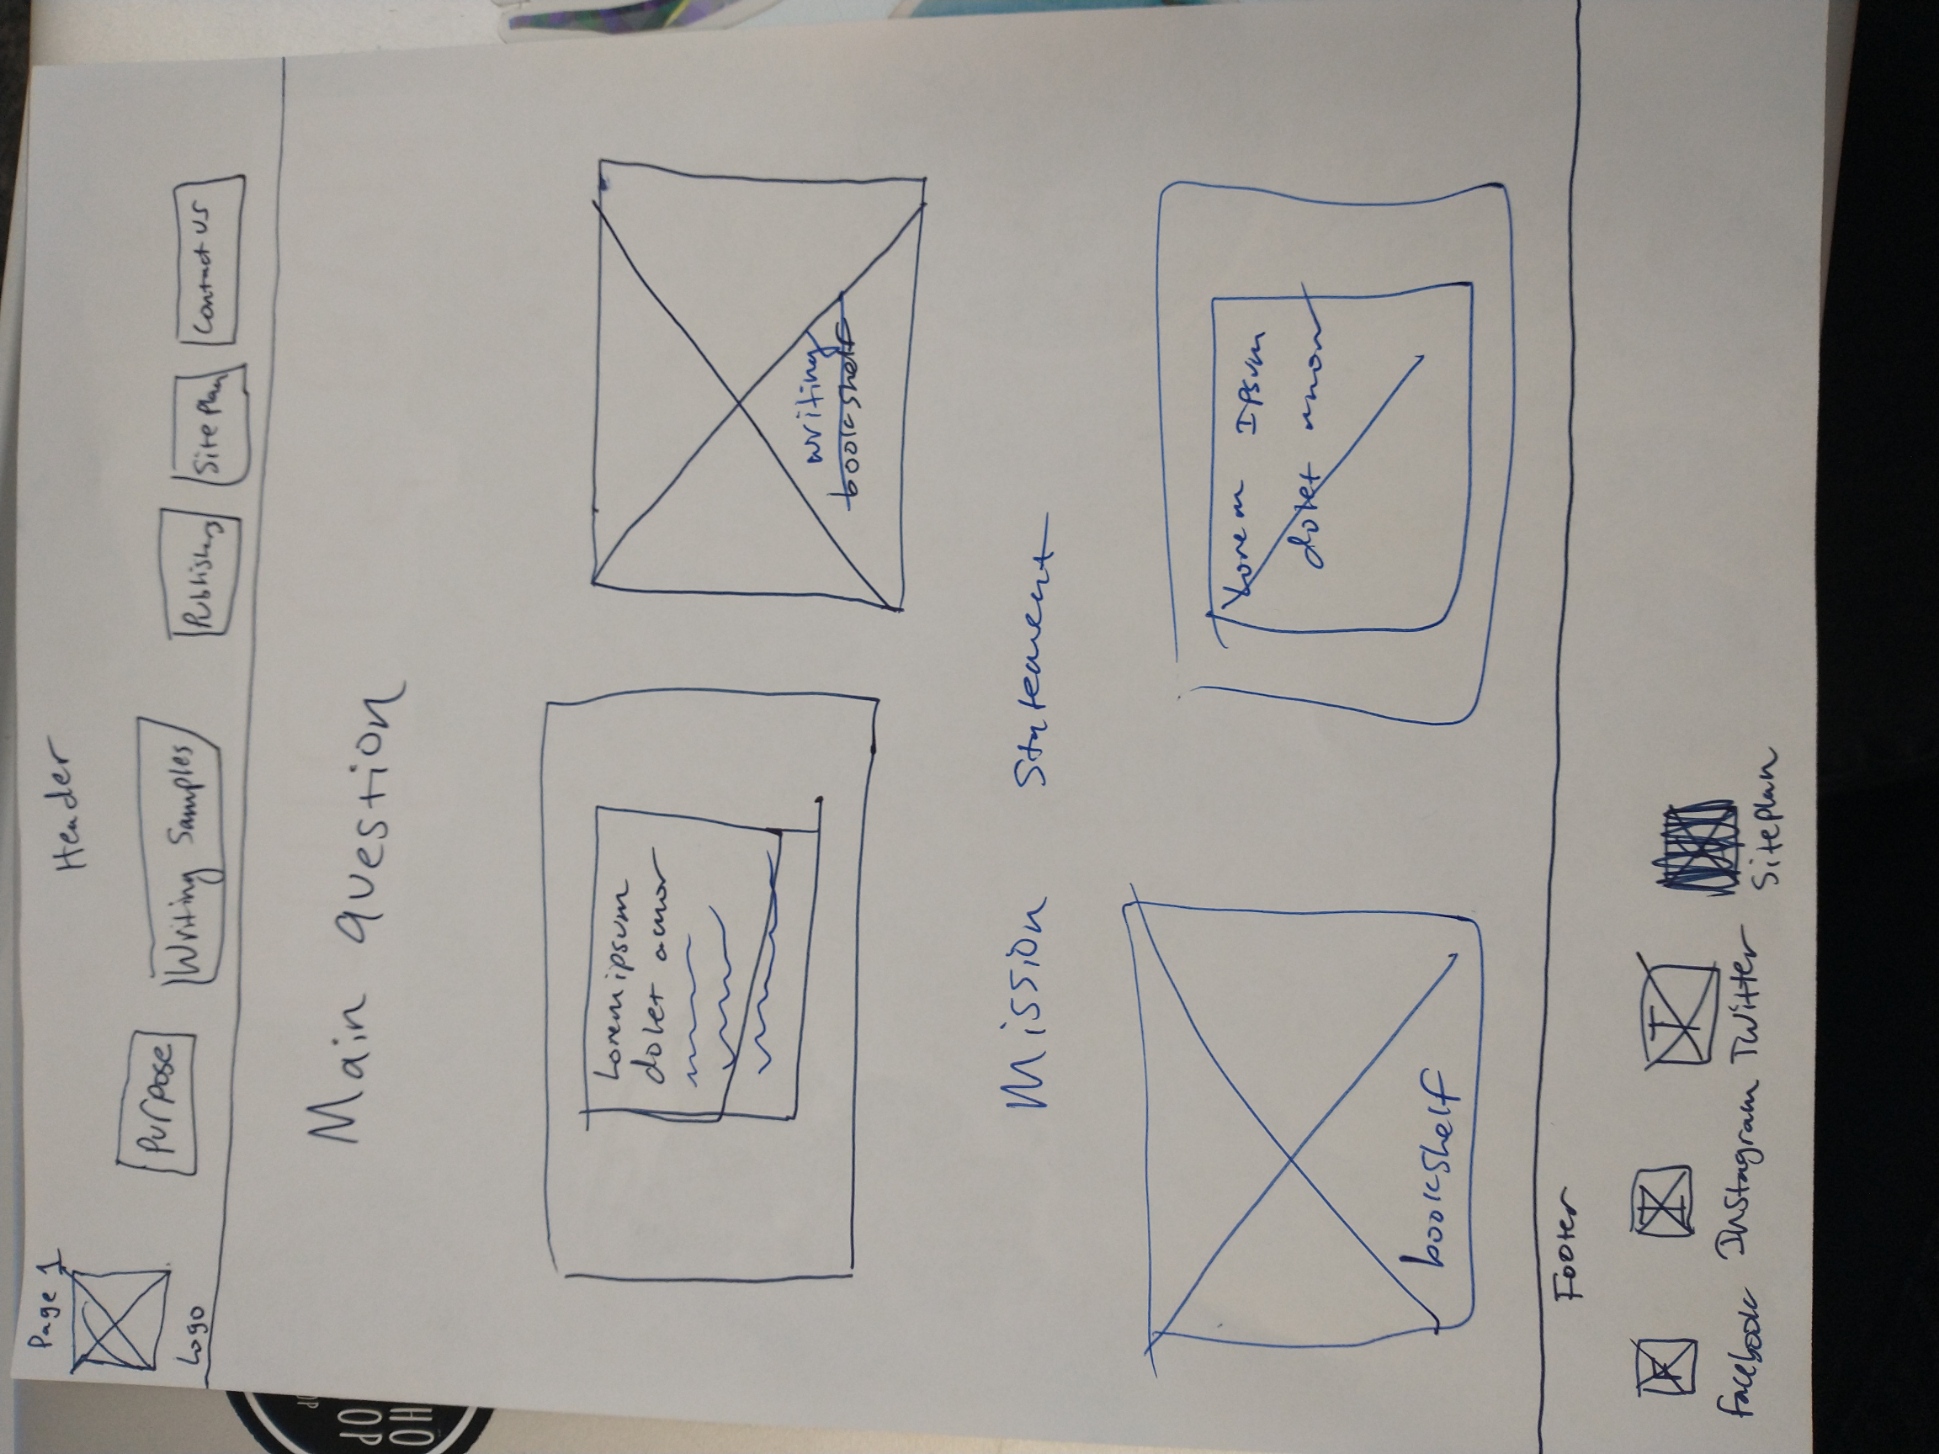 Page 1
Header
Logo
Purpose
Writing Samples
Publishers
Site Plan
Contact US
Main question
OP
HO
Lorem ipsum
dolet amor
writing
bookshelf
Mission Statement
bookshelf
Lorem Ipsum
dolet amor
Footer
F
I
T
Facebook
Instagram
Twitter
Siteplan